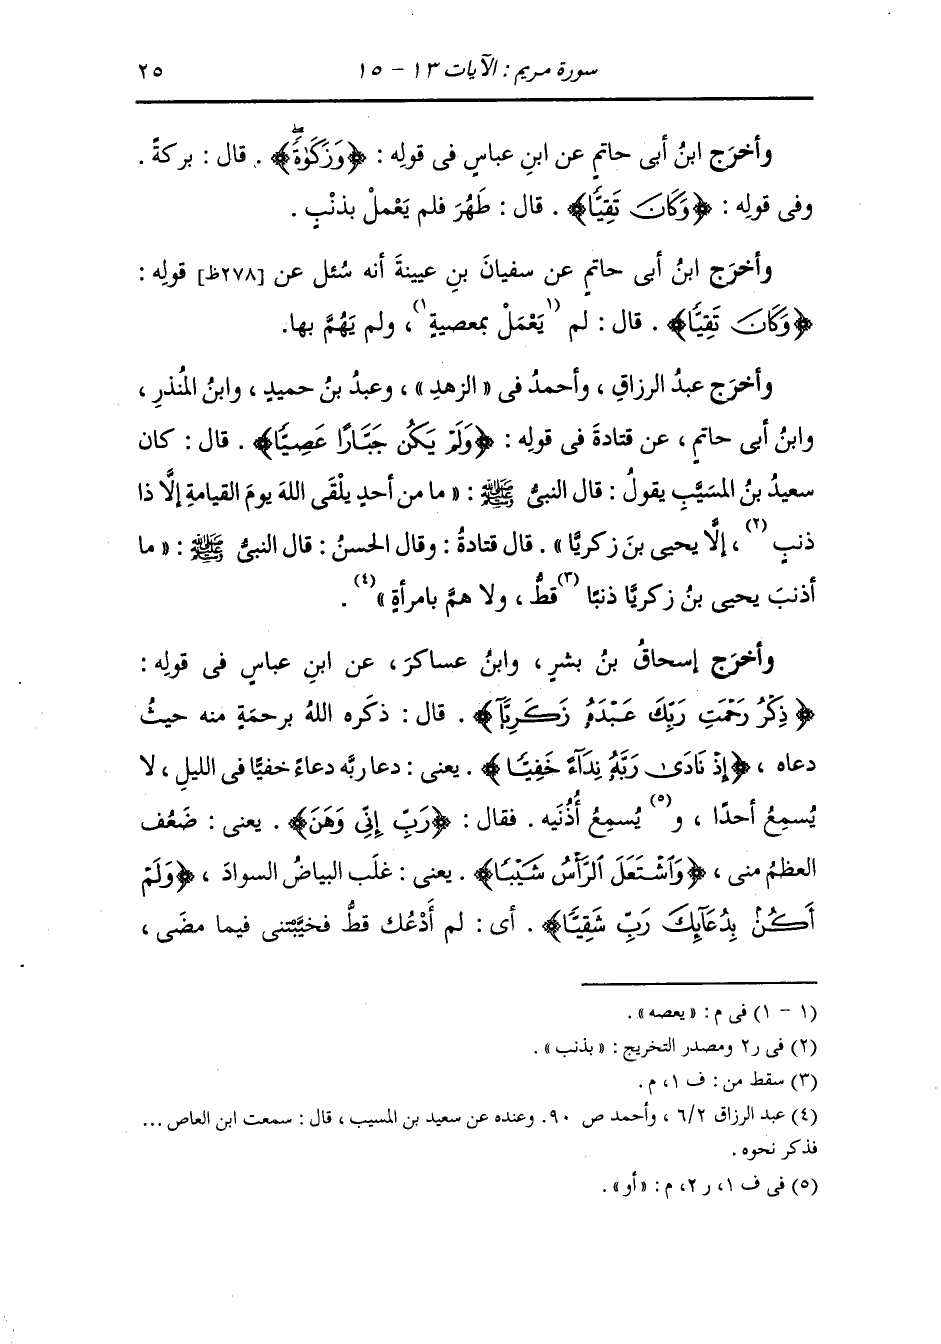 سورة مريم : الآيات ١٣ - ١٥ ٢٥
وأخرَج ابنُ أبى حاتمٍ عن ابنِ عباسٍ فى قولِه : ﴿وَزَكَوٰةًۖ﴾ . قال : بركةً .
وفى قولِه : ﴿وَكَانَ تَقِيًّا﴾ . قال : طَهُرَ فلم يَعْملْ بذنْبٍ .
وأخرَج ابنُ أبى حاتمٍ عن سفيانَ بنِ عيينةَ أنه سُئل عن [٢٧٨ظ] قولِه :
﴿وَكَانَ تَقِيًّا﴾ . قال : لم (١يَعْمَلْ بمعصيةٍ١)، ولم يَهُمَّ بها.
وأخرَج عبدُ الرزاقِ ، وأحمدُ فى « الزهدِ » ، وعبدُ بنُ حميدٍ ، وابنُ المُنذرِ ،
وابنُ أبى حاتمٍ ، عن قتادةَ فى قولِه : ﴿وَلَمْ يَكُن جَبَّارًا عَصِيًّا﴾ . قال : كان
سعيدُ بنُ المسيَّبِ يقولُ : قال النبىُّ ﷺ : « ما من أحدٍ يلْقَى اللهَ يومَ القيامةِ إلَّا ذا
ذنبٍ (٢) ، إلَّا يحيى بنَ زكريَّا » . قال قتادةُ : وقال الحسنُ : قال النبىُّ ﷺ : « ما
أذنبَ يحيى بنُ زكريَّا ذنبًا (٣) قطُّ ، ولا همَّ بامرأةٍ » (٤) .
وأخرَج إسحاقُ بنُ بشرٍ ، وابنُ عساكرَ ، عن ابنِ عباسٍ فى قولِه :
﴿ذِكْرُ رَحْمَتِ رَبِّكَ عَبْدَهُۥ زَكَرِيَّآ﴾ . قال : ذكَره اللهُ برحمَةٍ منه حيثُ
دعاه ، ﴿إِذْ نَادَىٰ رَبَّهُۥ نِدَآءً خَفِيًّا﴾ . يعنى : دعا ربَّه دعاءً خفيًّا فى الليلِ ، لا
يُسمِعُ أحدًا ، و(٥) يُسمِعُ أُذُنَيه . فقال : ﴿رَبِّ إِنِّى وَهَنَ﴾ . يعنى : ضَعُف
العظمُ منى ، ﴿وَٱشْتَعَلَ ٱلرَّأْسُ شَيْبًا﴾ . يعنى : غلَب البياضُ السوادَ ، ﴿وَلَمْ
أَكُنۢ بِدُعَآئِكَ رَبِّ شَقِيًّا﴾ . أى : لم أَدْعُك قطُّ فخيَّبْتنى فيما مضَى ،
(١ - ١) فى م : « يعصه » .
(٢) فى ر٢ ومصدر التخريج : « بذنب » .
(٣) سقط من : ف ١، م .
(٤) عبد الرزاق ٦/٢ ، وأحمد ص ٩٠. وعنده عن سعيد بن المسيب ، قال : سمعت ابن العاص ...
فذكر نحوه .
(٥) فى ف ١، ر ٢، م : « أو » .